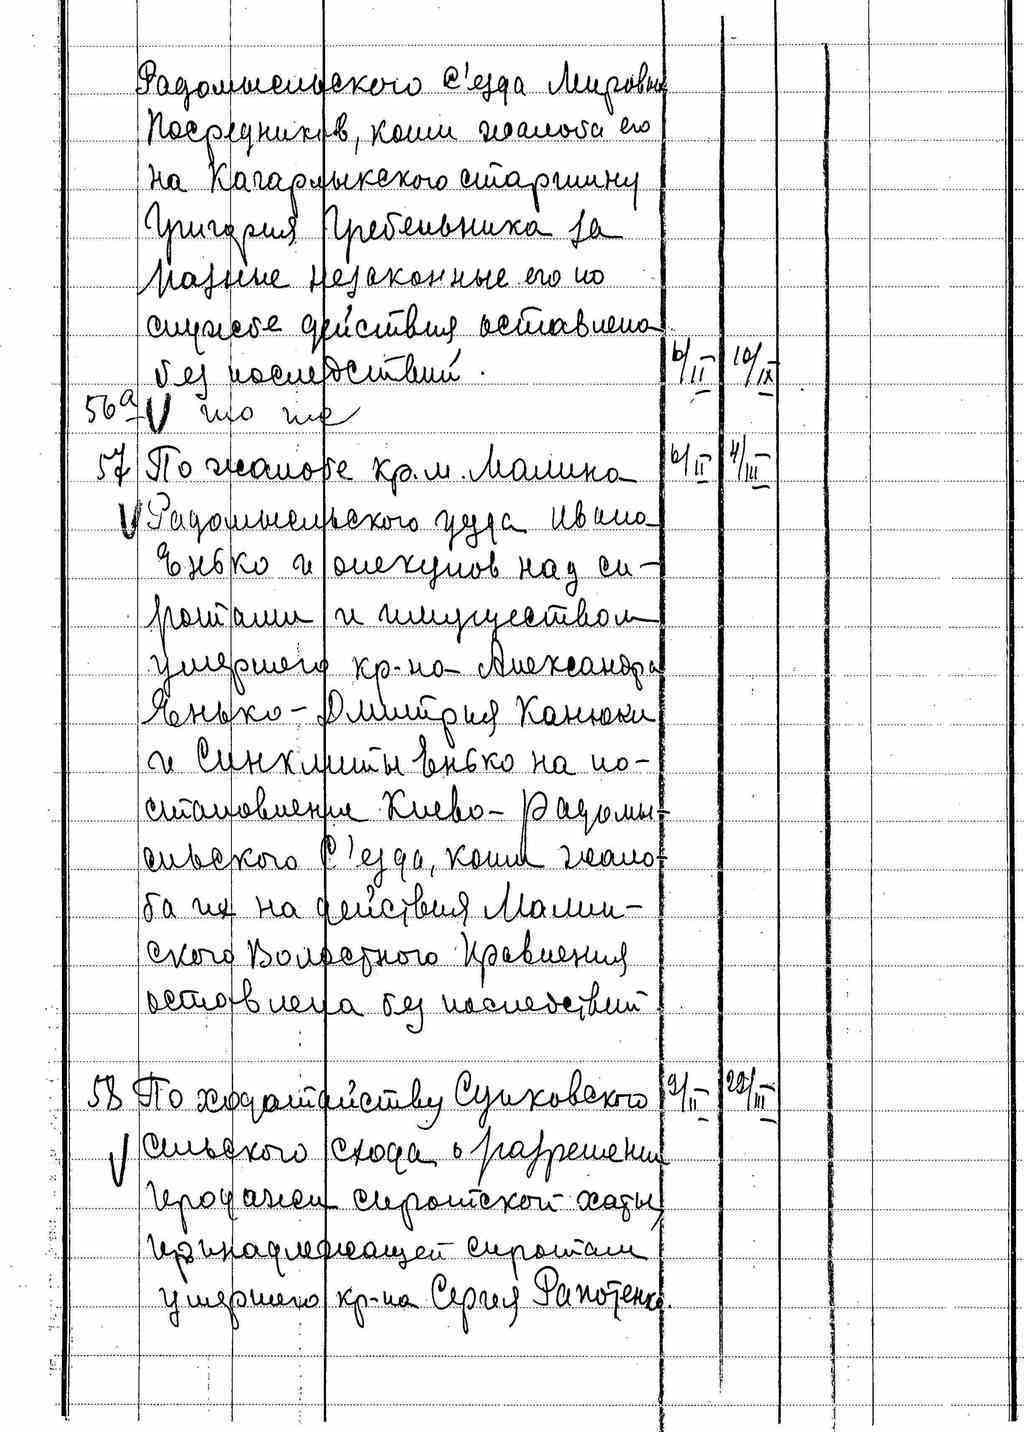 Радомысльского С'езда Мировых
Посредников, коим жалоба его
на Кагарлыкского старшину
Григория Гребельника за
разные незаконные его по
службе действия оставлена
без последствий. 6/II 10/IX
56а V то же
57 По жалобе кр. м. Малина 6/II 4/III
V Радомысльского уезда Ивана
Енько и опекунов над си-
ротами и имуществом
умершего кр-на Александра
Янько - Дмитрия Канюки
и Синклиты Енько на по-
становление Киево-Радомы-
сльского С'езда, коим жало-
ба их на действия Малин-
ского Волостного Правления
оставлена без последствий
58 По ходатайству Сушковского 9/II 22/III
V сельского схода о разрешении
продажи сиротской хаты,
принадлежащей сиротам
умершего кр-на Сергея Рапотенко.